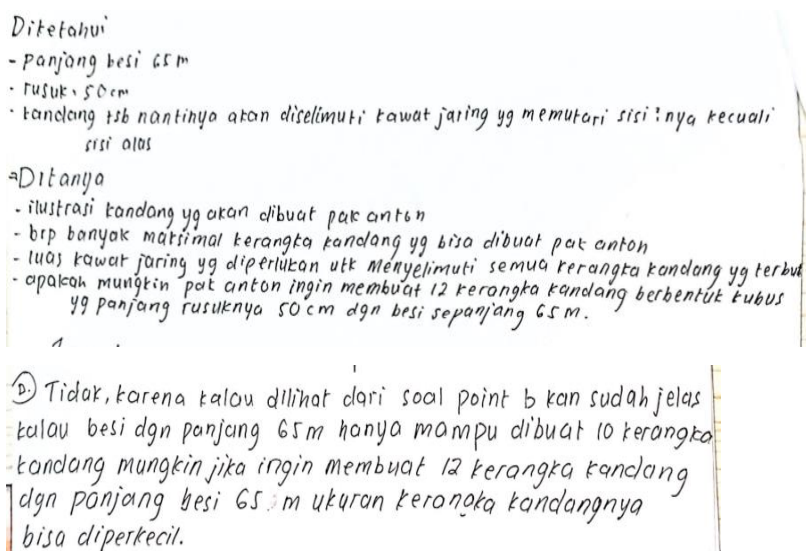 Diketahui
- Panjang besi 65 m
- rusuk : 50 cm
- kandang tsb nantinya akan diselimuti kawat jaring yg memutari sisi²nya kecuali
sisi alas
Ditanya
- ilustrasi kandang yg akan dibuat pak anton
- brp banyak maksimal kerangka kandang yg bisa dibuat pak anton
- luas kawat jaring yg diperlukan utk menyelimuti semua kerangka kandang yg terbut
- apakah mungkin pak anton ingin membuat 12 kerangka kandang berbentuk kubus
yg panjang rusuknya 50 cm dgn besi sepanjang 65 m.
D. Tidak, karena kalau dilihat dari soal point b kan sudah jelas
kalau besi dgn panjang 65 m hanya mampu dibuat 10 kerangka
kandang mungkin jika ingin membuat 12 kerangka kandang
dgn panjang besi 65 m ukuran kerangka kandangnya
bisa diperkecil.